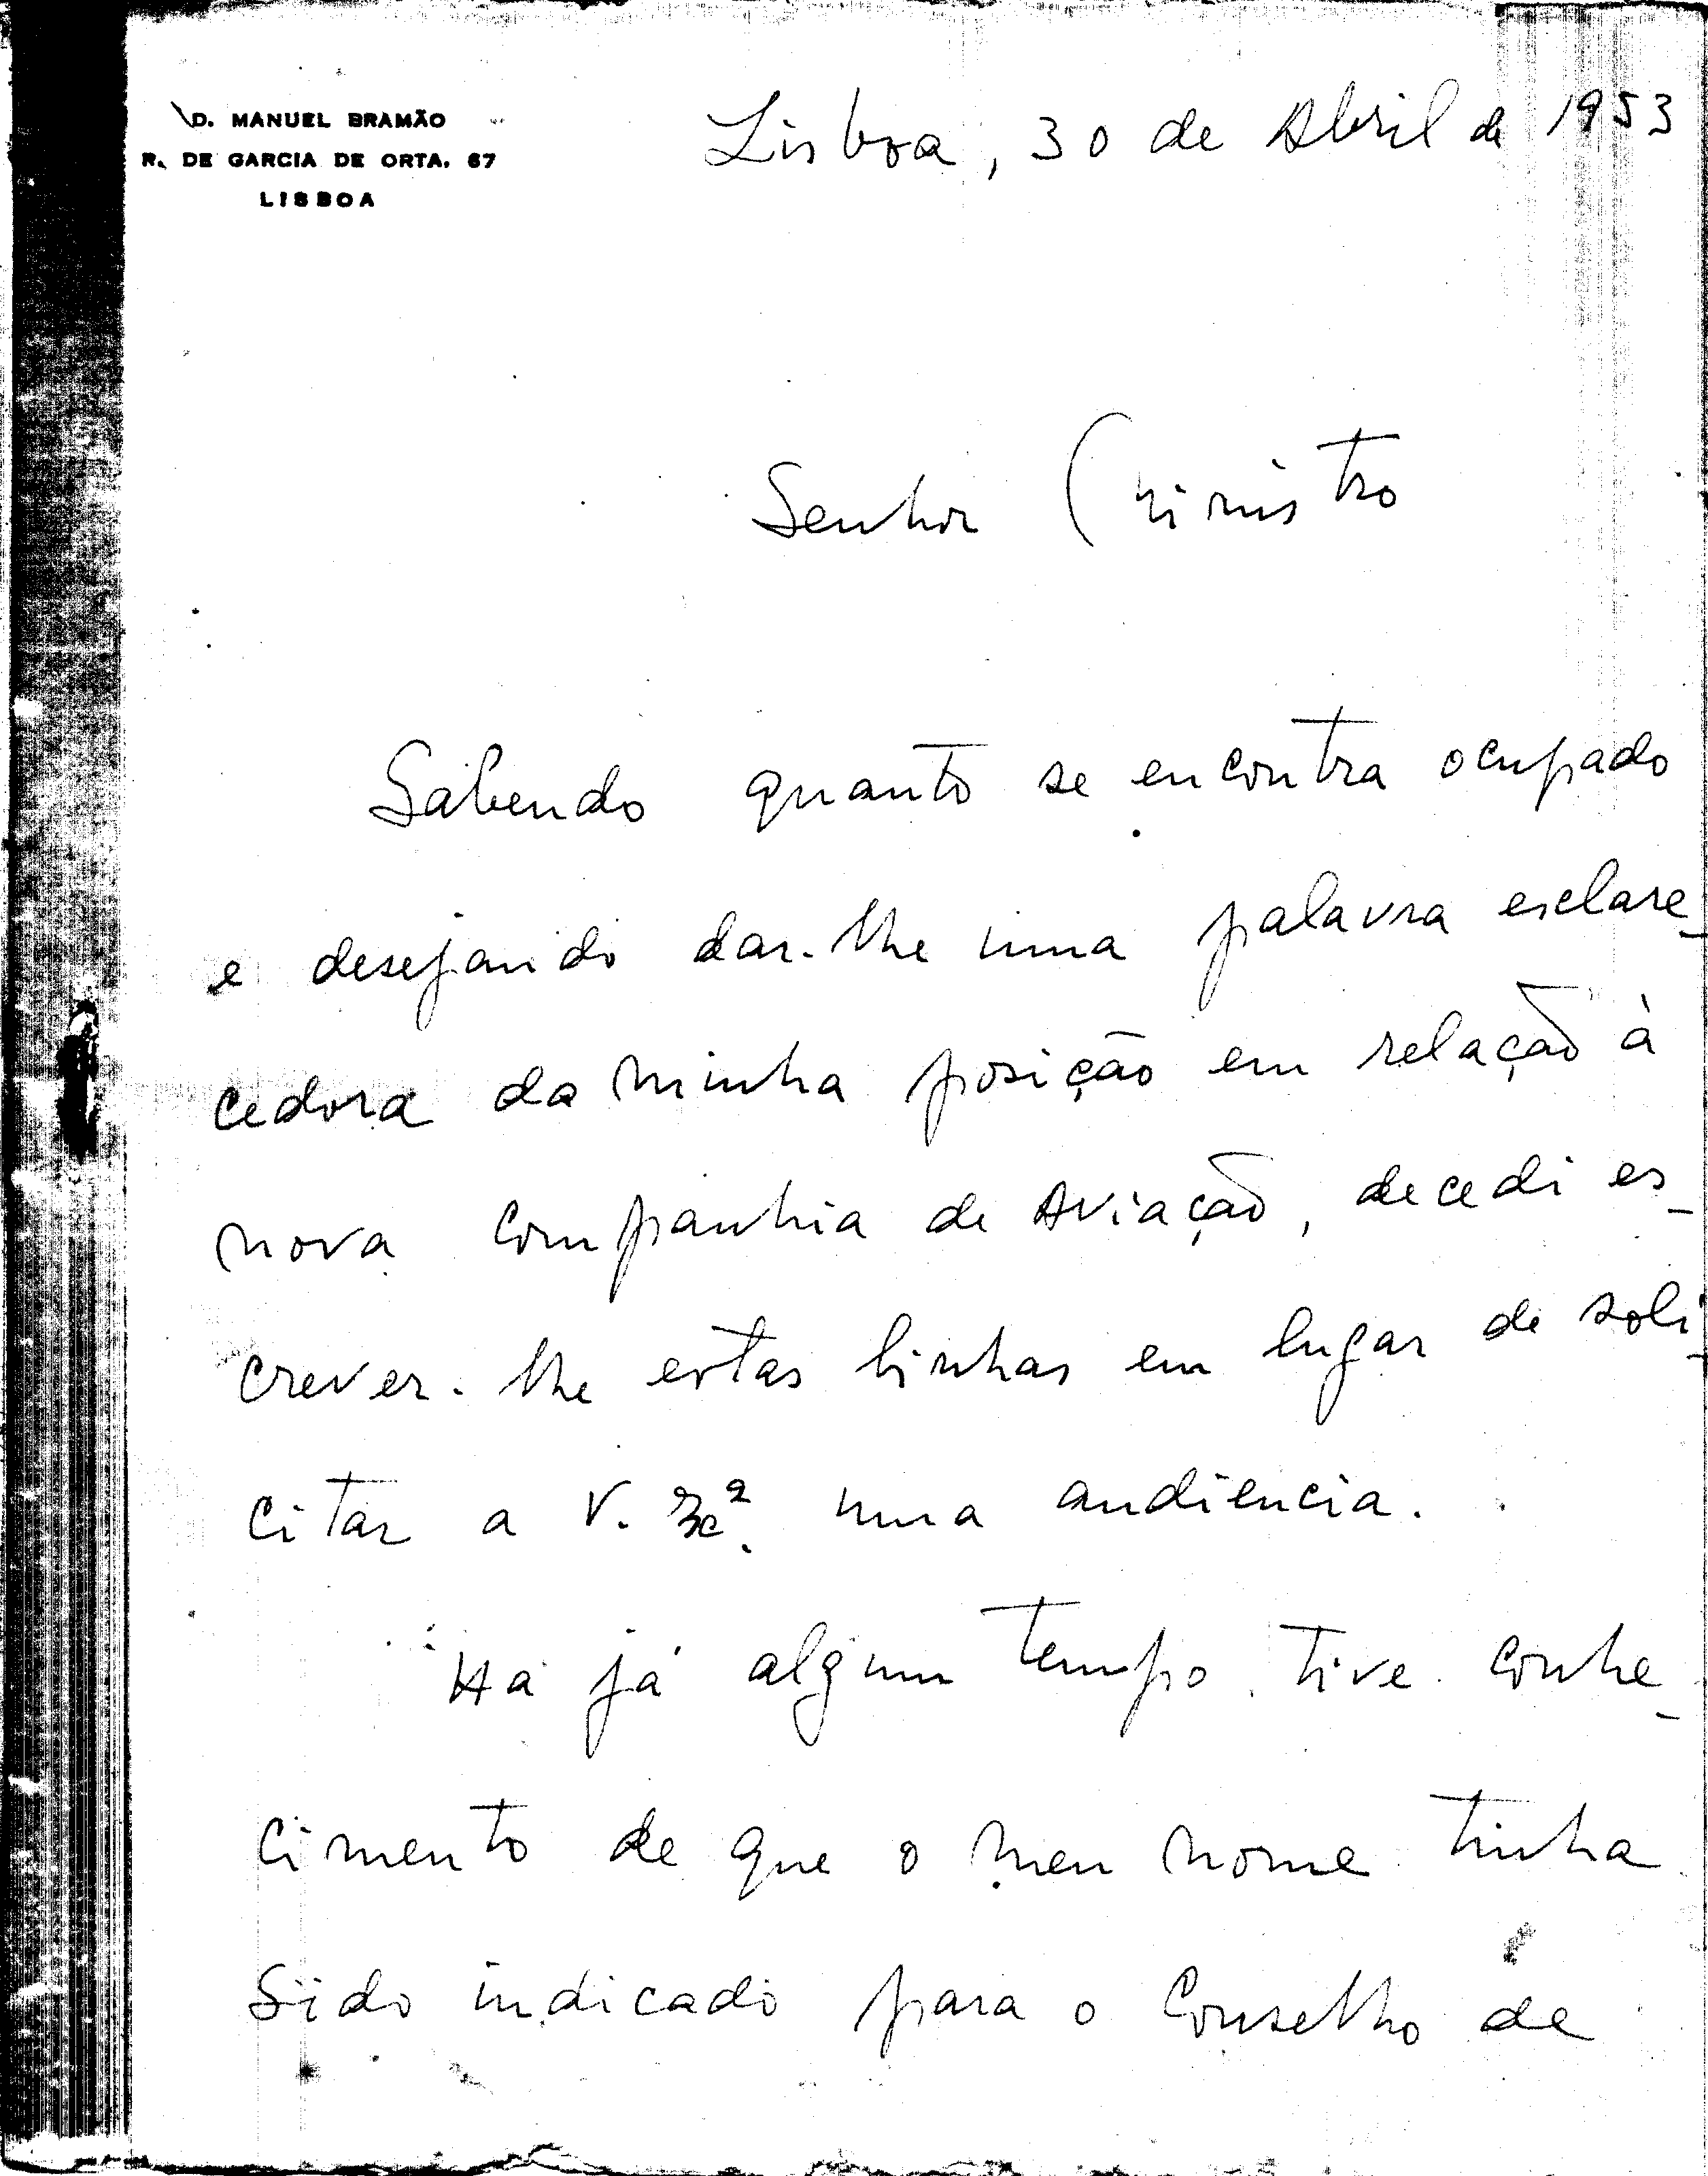 D. MANUEL BRAMÃO
R. DE GARCIA DE ORTA, 67
LISBOA
Lisboa, 30 de Abril de 1953
Senhor Ministro
Sabendo quanto se encontra ocupado
e desejando dar-lhe uma palavra esclare-
cedora da minha posição em relação à
nova Companhia de Aviação, decedi es-
crever-lhe estas linhas em lugar de soli-
citar a V. Exª. uma audiencia.
Há já algum tempo tive conhe-
cimento de que o meu nome tinha
sido indicado para o Conselho de